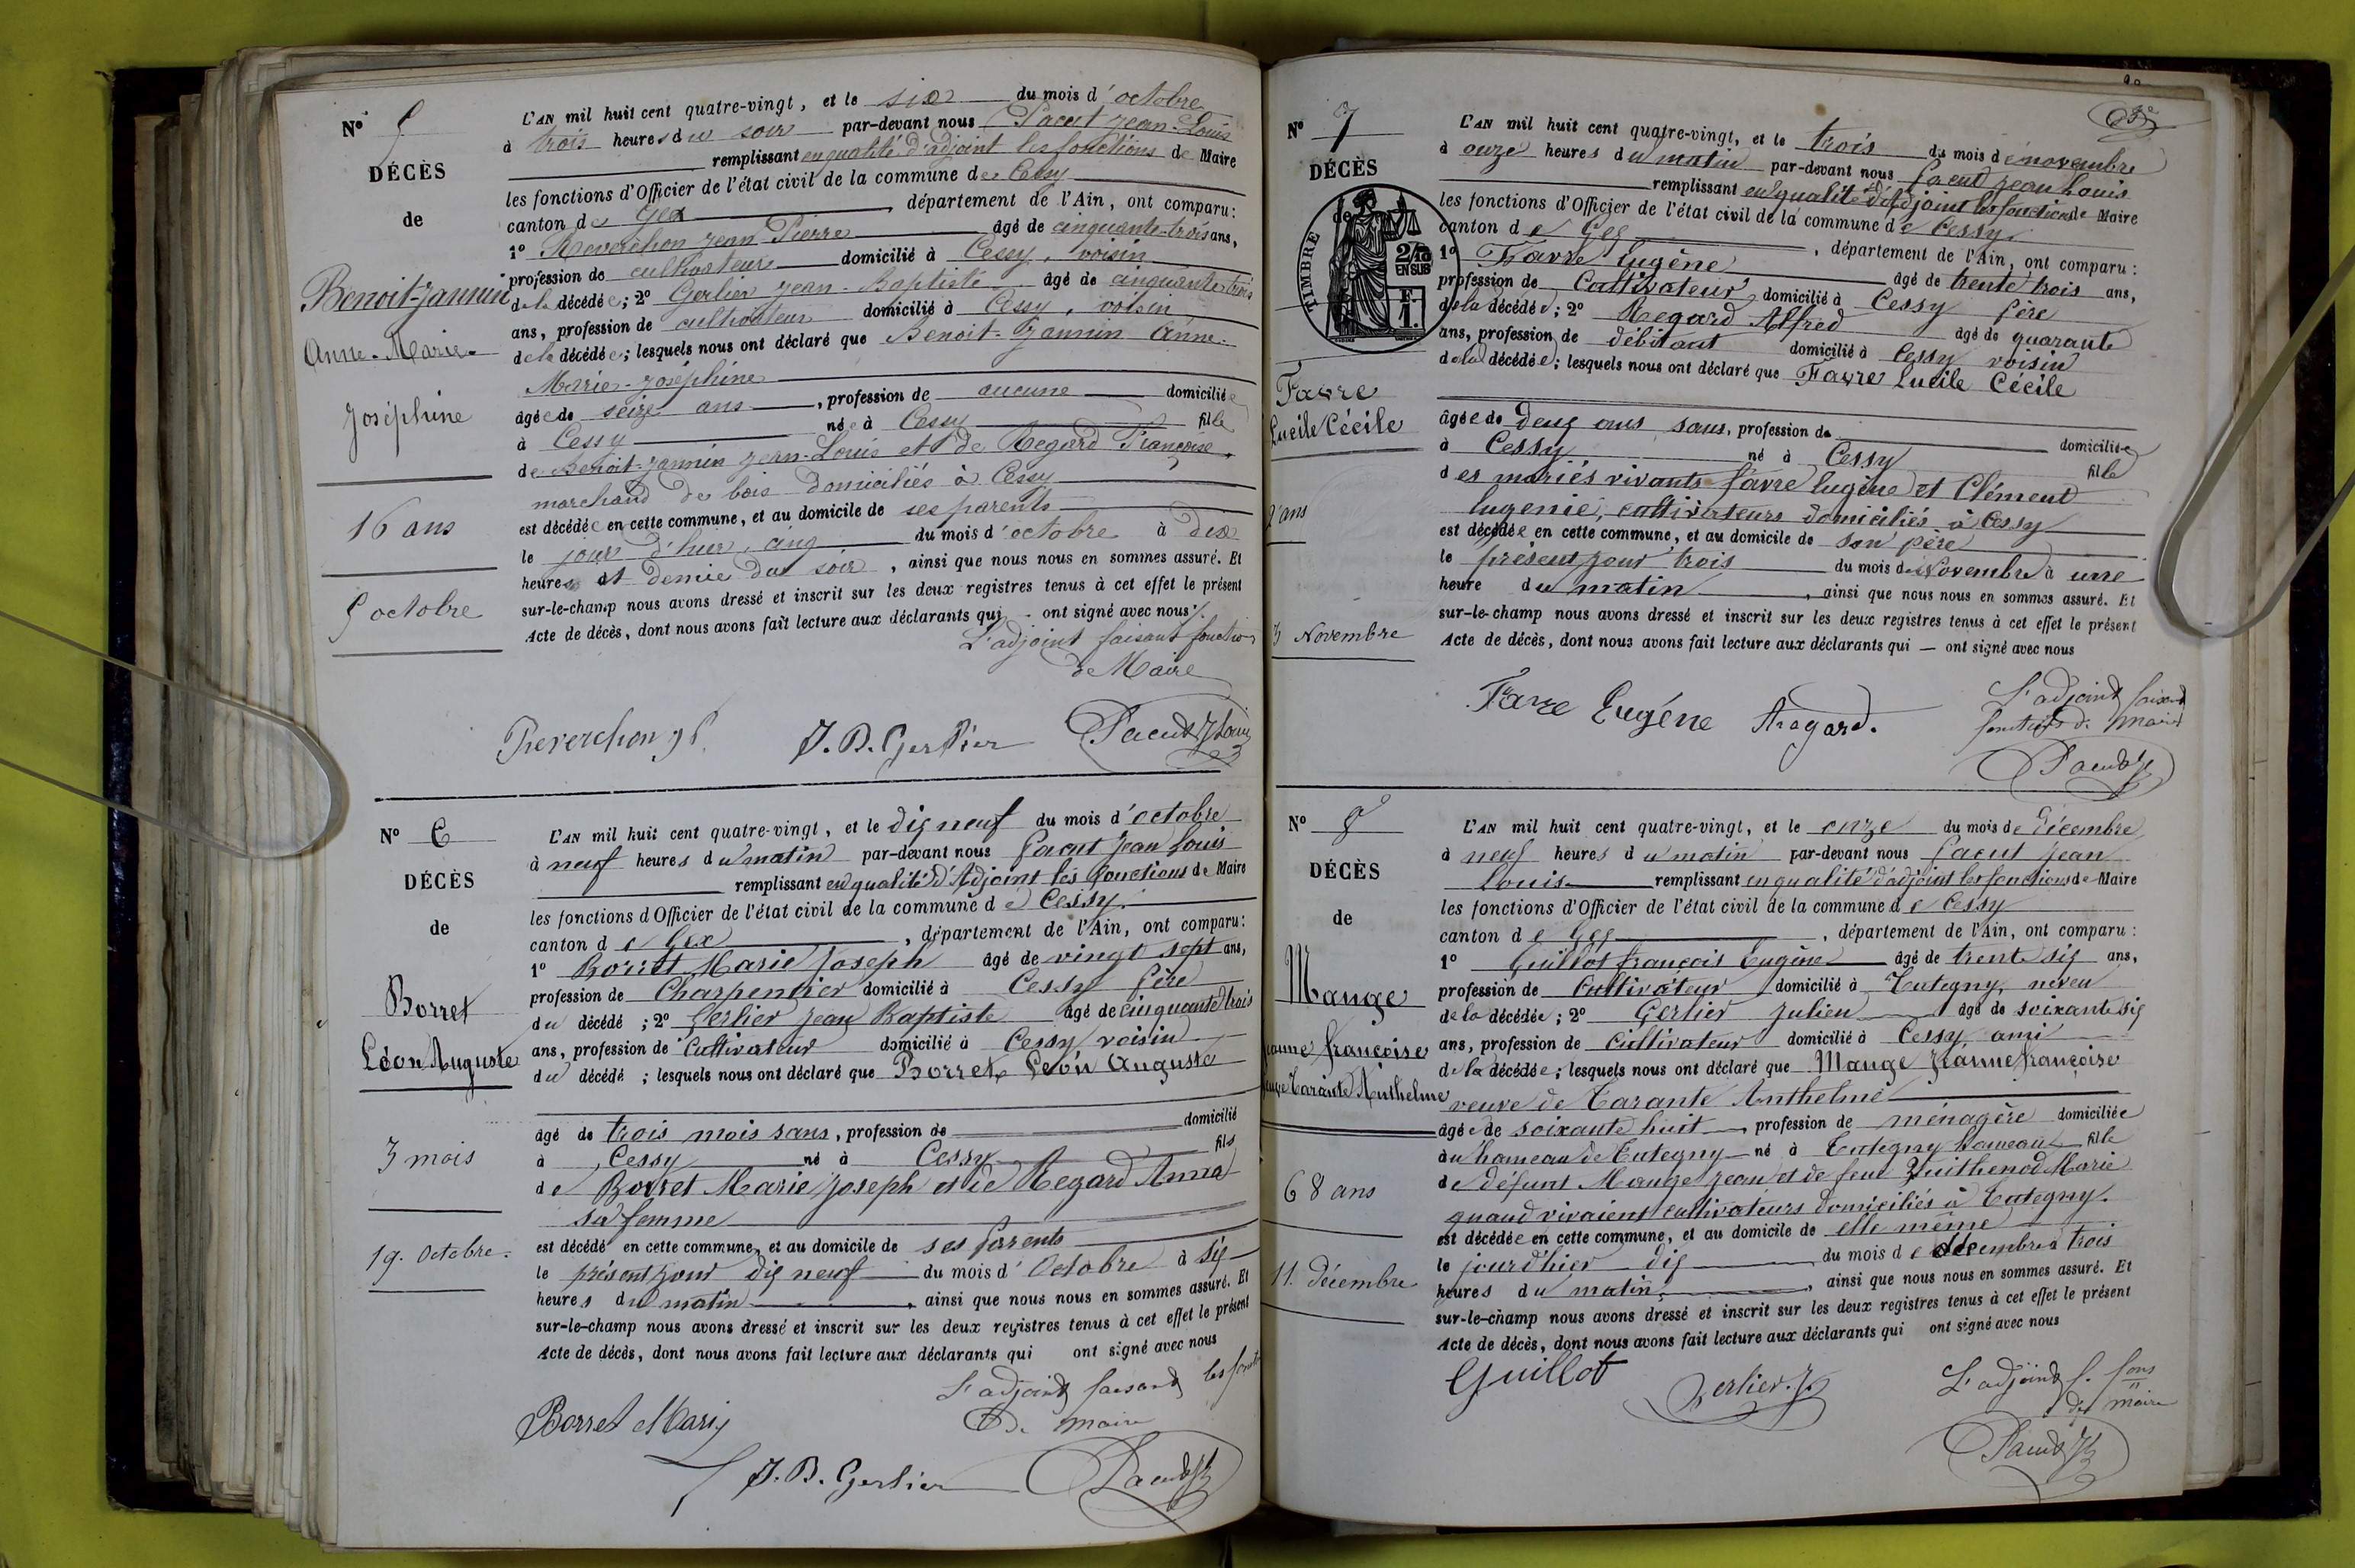 N° 5
DÉCÈS
de
Benoit-Jannin
Anne-Marie-
Joséphine
16 ans
5 octobre
L'AN mil huit cent quatre-vingt, et le six du mois d'octobre
à trois heures du soir par-devant nous Pacut Jean-Louis
remplissant en qualité d'adjoint les fonctions de Maire
les fonctions d'Officier de l'état civil de la commune de Cessy
canton de Gex, département de l'Ain, ont comparu:
1° Reverchon Jean-Pierre âgé de cinquante-trois ans,
profession de cultivateur domicilié à Cessy, voisin
de la décédée; 2° Gerlier Jean-Baptiste âgé de cinquante trois
ans, profession de cultivateur domicilié à Cessy, voisin
de la décédée; lesquels nous ont déclaré que Benoit-Jannin Anne-
Marie-Joséphine
âgée de seize ans, profession de aucune domiciliée
à Cessy née à Cessy fille
de Benoit-Jannin Jean-Louis et de Regard Françoise,
marchand de bois domiciliés à Cessy
est décédée en cette commune, et au domicile de ses parents
le jour d'hier, cinq du mois d'octobre à dix
heures et demie du soir, ainsi que nous nous en sommes assuré. Et
sur-le-champ nous avons dressé et inscrit sur les deux registres tenus à cet effet le présent
Acte de décès, dont nous avons fait lecture aux déclarants qui ont signé avec nous.
L'adjoint faisant fonction
de Maire
Reverchon J P. J. B. Gerlier Pacut J Louis
N° 6
DÉCÈS
de
Borret
Léon Auguste
3 mois
19. Octobre.
L'AN mil huit cent quatre-vingt, et le dix neuf du mois d'octobre
à neuf heures du matin par-devant nous Pacut Jean Louis
remplissant en qualité d'Adjoint les fonctions de Maire
les fonctions d'Officier de l'état civil de la commune de Cessy.
canton de Gex, département de l'Ain, ont comparu:
1° Borret Marie Joseph âgé de vingt sept ans,
profession de Charpentier domicilié à Cessy père
du décédé; 2° Gerlier Jean Baptiste âgé de cinquante trois
ans, profession de Cultivateur domicilié à Cessy voisin
du décédé; lesquels nous ont déclaré que Borret Léon Auguste
âgé de trois mois sans, profession de domicilié
à Cessy né à Cessy fils
de Borret Marie Joseph et de Regard Anna
sa femme
est décédé en cette commune, et au domicile de ses parents
le présent jour dix neuf du mois d'Octobre à six
heures du matin, ainsi que nous nous en sommes assuré. Et
sur-le-champ nous avons dressé et inscrit sur les deux registres tenus à cet effet le présent
Acte de décès, dont nous avons fait lecture aux déclarants qui ont signé avec nous
L'adjoint faisant les fonct
de maire
Borret Marij
J. B. Gerlier Pacut JL
N° 7
DÉCÈS
de
TIMBRE
2/10
EN SUS
F.
1.
Favre
Lucile Cécile
2 ans
3 Novembre
L'AN mil huit cent quatre-vingt, et le trois du mois de novembre
à onze heures du matin par-devant nous Pacut Jean Louis
remplissant en qualité d'Adjoint les fonctions de Maire
les fonctions d'Officier de l'état civil de la commune de Cessy.
canton de Gex, département de l'Ain, ont comparu:
1° Favre Eugène âgé de trente trois ans,
profession de Cultivateur domicilié à Cessy père
de la décédée; 2° Regard Alfred âgé de quarante
ans, profession de débitant domicilié à Cessy voisin
de la décédée; lesquels nous ont déclaré que Favre Lucile Cécile
âgée de deux ans sans, profession de domiciliée
à Cessy né à Cessy fille
des mariés vivants Favre Eugène et Clément
Eugenie, cultivateurs domiciliés à Cessy
est décédée en cette commune, et au domicile de son père
le présent jour trois du mois de Novembre à une
heure du matin, ainsi que nous nous en sommes assuré. Et
sur-le-champ nous avons dressé et inscrit sur les deux registres tenus à cet effet le présent
Acte de décès, dont nous avons fait lecture aux déclarants qui ont signé avec nous
L'adjoint faisant
fonctions de maire
Favre Eugéne Aregard.
Pacut JL
N° 8
DÉCÈS
de
Mange
Jeanne françoise
veuve Tarante Anthelme
68 ans
11. Décembre
L'AN mil huit cent quatre-vingt, et le onze du mois de Décembre
à neuf heures du matin par-devant nous Pacut Jean
Louis remplissant en qualité d'adjoint les fonctions de Maire
les fonctions d'Officier de l'état civil de la commune de Cessy
canton de Gex, département de l'Ain, ont comparu:
1° Guillot françois Eugène âgé de trente six ans,
profession de Cultivateur domicilié à Tutegny, neveu
de la décédée; 2° Gerlier Julien âgé de soixante six
ans, profession de Cultivateur domicilié à Cessy, ami
de la décédée; lesquels nous ont déclaré que Mange Jeanne françoise
veuve de Tarante Anthelme
âgée de soixante huit, profession de ménagère domiciliée
au hameau de Tutegny né à Tutegny hameau fille
de défunt Mange Jean et de feue Marie
quand vivaient cultivateurs domiciliés à Tutegny.
est décédée en cette commune, et au domicile de elle même
le jour d'hier dix du mois de décembre à trois
heures du matin, ainsi que nous nous en sommes assuré. Et
sur-le-champ nous avons dressé et inscrit sur les deux registres tenus à cet effet le présent
Acte de décès, dont nous avons fait lecture aux déclarants qui ont signé avec nous
Guillot Gerlier. J. L'adjoint f. fons
de maire
Pacut JL